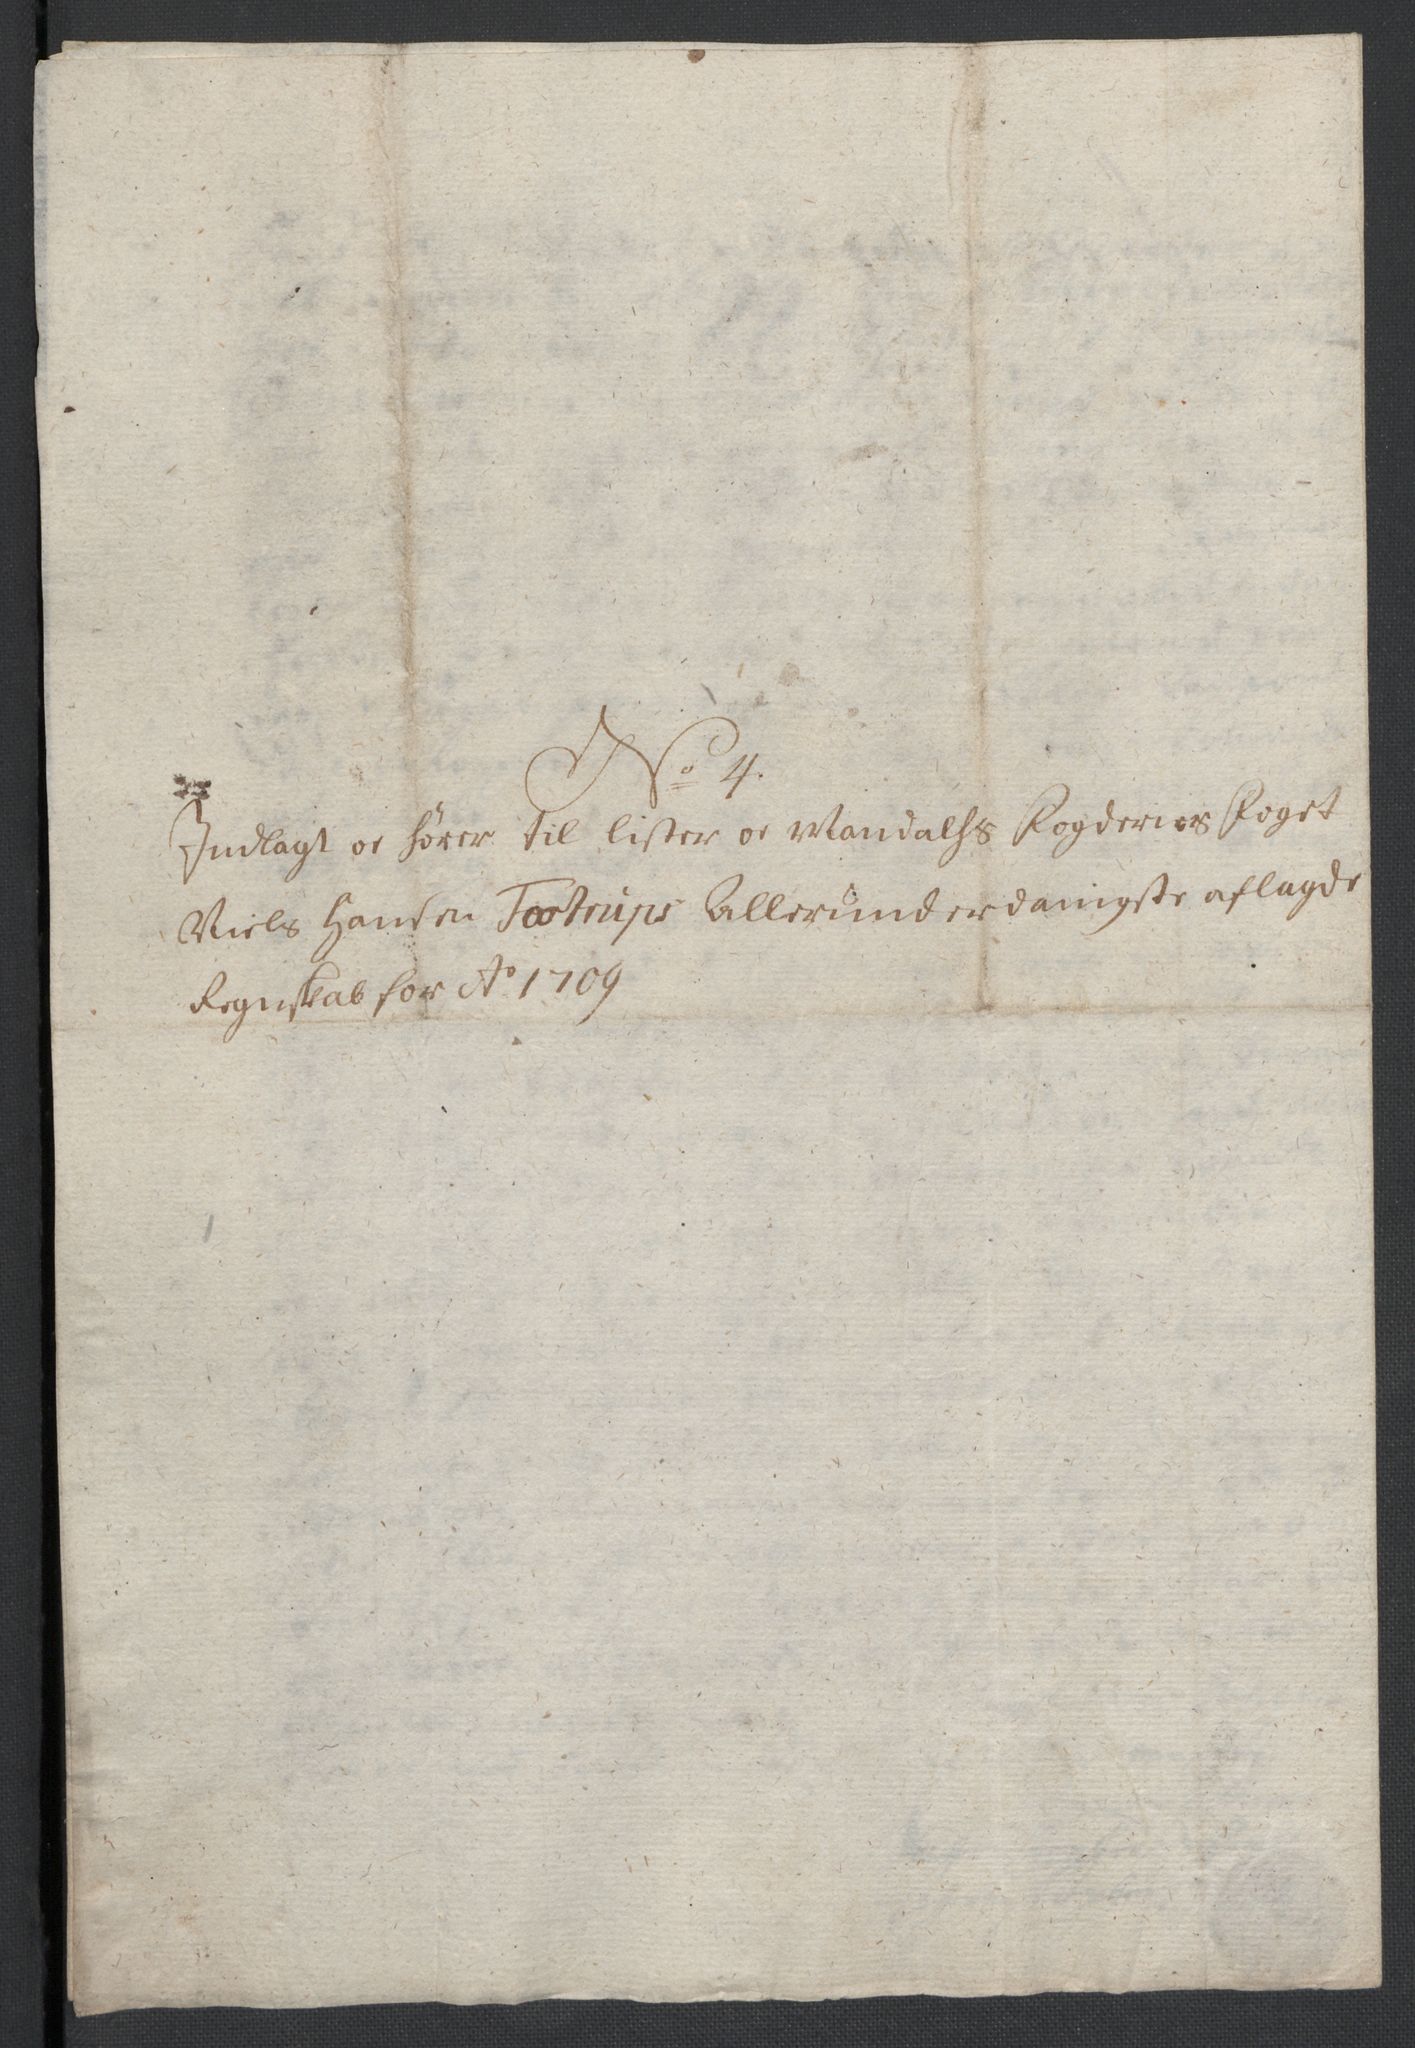 No 4.
Indlagt oc hører til lister oc Mandalhs Fogderies Foget
Niels Hansen Tostrups Allerunderdanigste aflagde
Regnskab for Ao 1709